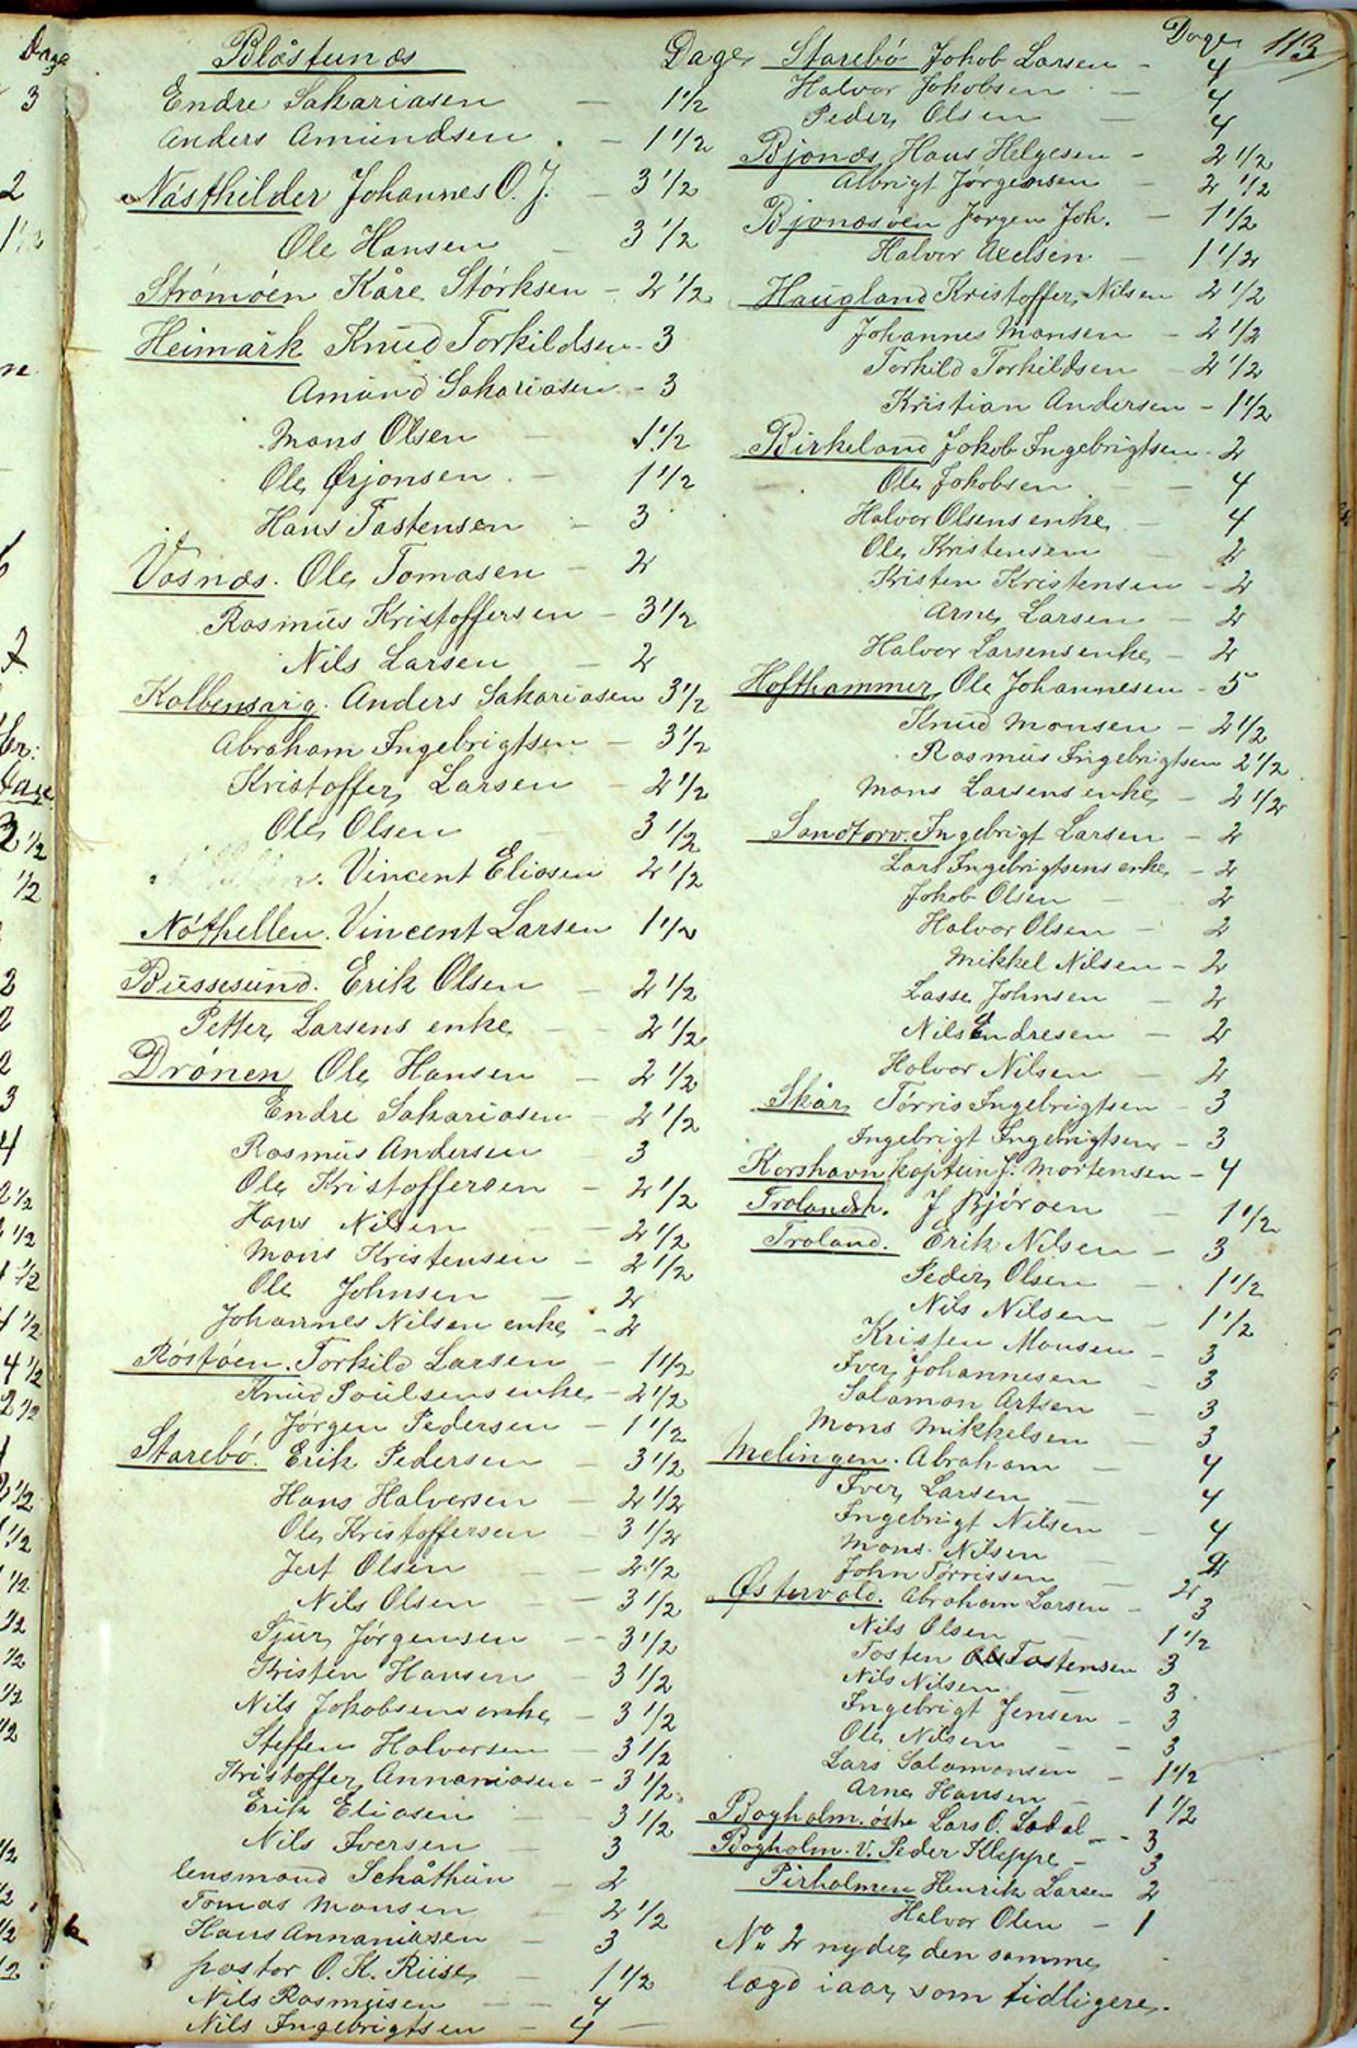 Blåstunæs Dage
Endre Sakariasen — 1 1/2
Anders Amundsen . — 1 1/2
Nåsthilder Johannes O. J. — 3 1/2
Ole Hansen — 3 1/2
Strømøen Kåre Størksen — 2 1/2
Heimark Knud Torkildsen — 3
Amund Sakariasen — 3
Mons Olsen — 1 1/2
Ole Ørjansen . — 1 1/2
Hans Tastensen — 3
Vasnæs. Ole Tomasen — 2
Rasmus Kristoffersen — 3 1/2
Nils Larsen — 2
Kolbensvig. Anders Sakariasen 3 1/2
Abraham Ingebrigtsen — 3 1/2
Kristoffer Larsen — 2 1/2
Ole Olsen — 3 1/2
Vincent Eliasen 2 1/2
Nøthellen. Vincent Larsen 1 1/2
Bussesund. Erik Olsen — 2 1/2
Petter Larsens enke — 2 1/2
Drønen Ole Hansen — 2 1/2
Endre Sakariasen — 2 1/2
Rasmus Andersen — 3
Ole Kristoffersen — 2 1/2
Hans Nilsen — 2 1/2
Mons Kristensen — 2 1/2
Ole Johnsen — 2
Johannes Nilsen enke — 2
Røstøen. Torkild Larsen — 1 1/2
Knud Poulsens enke — 2 1/2
Jørgen Pedersen — 1 1/2
Starebø. Erik Pedersen — 3 1/2
Hans Halversen — 2 1/2
Ole Kristoffersen — 3 1/2
Jert Olsen — 2 1/2
Nils Olsen — 3 1/2
Sjur Jørgensen — 3 1/2
Kristen Hansen — 3 1/2
Nils Jakobsens enke — 3 1/2
Steffen Halvorsen — 3 1/2
Kristoffer Annaniasen — 3 1/2
Erik Eliasen — 3 1/2
Nils Iversen — 3
lensmand Schåthun — 2
Tomas Monsen — 2 1/2
Hans Annaniasen — 3
pastor O. K. Riise — 1 1/2
Nils Rasmusen — 4
Nils Ingebrigtsen — 4 —
Dage 113
Starebø Jakob Larsen — 4
Halvor Jakobsen — 4
Peder Olsen — 4
Bjonæs Hans Helgesen — 2 1/2
Albrigt Jørgensen — 2 1/2
Bjonæsøen Jørgen Joh. — 1 1/2
Halvor Axelsen — 1 1/2
Haugland Kristoffer Nilsen 2 1/2
Johannes Monsen — 2 1/2
Torkild Torkildsen — 2 1/2
Kristian Andersen — 1 1/2
Birkeland Jakob Ingebrigtsen — 2
Ole Jakobsen — 4
Halvor Olsens enke — 4
Ole Kristensen — 2
Kristen Kristensen — 2
Arne Larsen — 2
Halvor Larsens enke — 2
Hofthammer Ole Johannesen — 5
Knud Monsen — 2 1/2
Rasmus Ingebrigtsen 2 1/2
Mons Larsens enke — 2 1/2
Sandtorv. Ingebrigt Larsen — 2
Lars Ingebrigtsens enke — 2
Jakob Olsen — 2
Halvor Olsen — 2
Mikkel Nilsen — 2
Lasse Johnsen — 2
Nils Endresen — 2
Halvor Nilsen — 2
Skår Tørris Ingebrigtsen — 3
Ingebrigt Ingebrigtsen — 3
Korshavn kaptein J. Mortensen — 4
Trolandsh. J Bjøroen — 1 1/2
Troland. Erik Nilsen — 3
Peder Olsen — 1 1/2
Nils Nilsen — 1 1/2
Kristen Monsen — 3
Iver Johannesen — 3
Salamon Artsen — 3
Mons Mikkelsen — 3
Melingen. Abraham — 4
Iver Larsen — 4
Ingebrigt Nilsen — 4
Mons Nilsen 2
John Tørrissen — 2
Østervold. Abraham Larsen — 3
Nils Olsen — 1 1/2
Tosten Tostensen 3
Nils Nilsen — 3
Ingebrigt Jensen — 3
Ole Nilsen — 3
Lars Salamonsen — 1 1/2
Arne Hansen — 1 1/2
Bogholm. østre Lars O. Ladal — 3
Bogholm. V. Peder Kleppe — 3
Pirholmen Henrik Larsen 2
Halvor Olen — 1
No 2 nyder den samme
lægd iaar som tidligere.